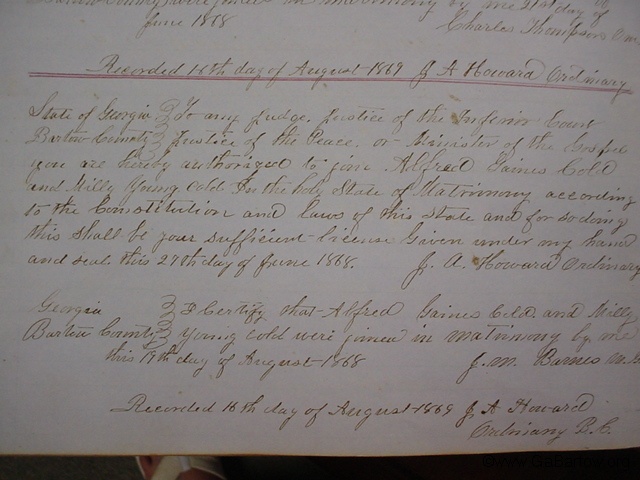 Bartow County were joined in matrimony by me 21st day of
June 1868
Charles Thompson
Recorded 16th day of August 1869 J A Howard Ordinary
State of Georgia } To any Judge, Justice of the Inferior Court
Bartow County } Justice of the Peace, or Minister of the Gospel
you are hereby authorized to join Alfred Gaines Cold
and Milly Young cold In the holy State of Matrimony according
to the Constitution and laws of this state and for so doing
this shall be your sufficient license Given under my hand
and seal this 27th day of June 1868. J. A. Howard Ordinary
Georgia } I Certify that Alfred Gaines Cold and Milly
Bartow County } Young cold were joined in matrimony by me
this 19th day of August 1868 J. M. Barnes
Recorded 16th day of August 1869 J A Howard
Ordinary B. C.